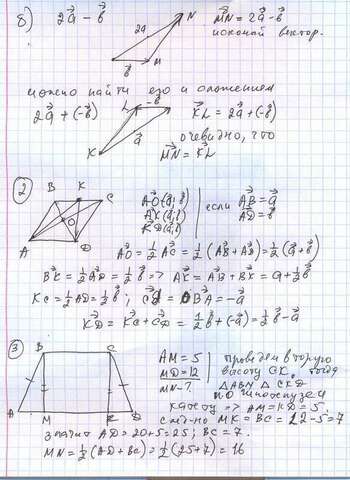 б) 2a⃗ - b⃗
2a⃗
N
b⃗
M
MN⃗ = 2a⃗ - b⃗
искомый вектор.
можно найти его и сложением
2a⃗ + (-b⃗)
L
-b⃗
a⃗
K
KL⃗ = 2a⃗ + (-b⃗)
очевидно, что
MN⃗ = KL⃗
②
B K C
O
A D
AO⃗(a⃗,b⃗)
AK⃗(a⃗,b⃗)
KD⃗(a⃗,b⃗)
если
AB⃗ = a⃗
AD⃗ = b⃗
AO⃗ = 1/2 AC⃗ = 1/2 (AB⃗ + AD⃗) = 1/2 (a⃗ + b⃗)
BK⃗ = 1/2 AD⃗ = 1/2 b⃗ => AK⃗ = AB⃗ + BK⃗ = a + 1/2 b⃗
KC = 1/2 AD⃗ = 1/2 b⃗; CD⃗ = BA⃗ = -a⃗
KD⃗ = KC⃗ + CD⃗ = 1/2 b⃗ + (-a⃗) = 1/2 b⃗ - a⃗
③
B C
A M K D
AM = 5
MD = 12
MN - ?
проведем вторую
высоту CK, тогда
△ABM △CKD
по гипотенузе
катету => AM = KD = 5,
MK = BC = 12 - 5 = 7
значит AD = 20 + 5 = 25; BC = 7.
MN = 1/2 (AD + BC) = 1/2 (25 + 7) = 16